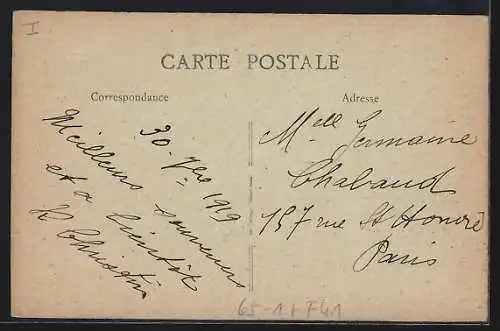 I
CARTE POSTALE
Correspondance
Adresse
30 - 7bre 1919
Meilleurs souvenirs
et à bientôt
Melle Germaine
Chabaud
157 rue St Honoré
Paris
65-1 + F41